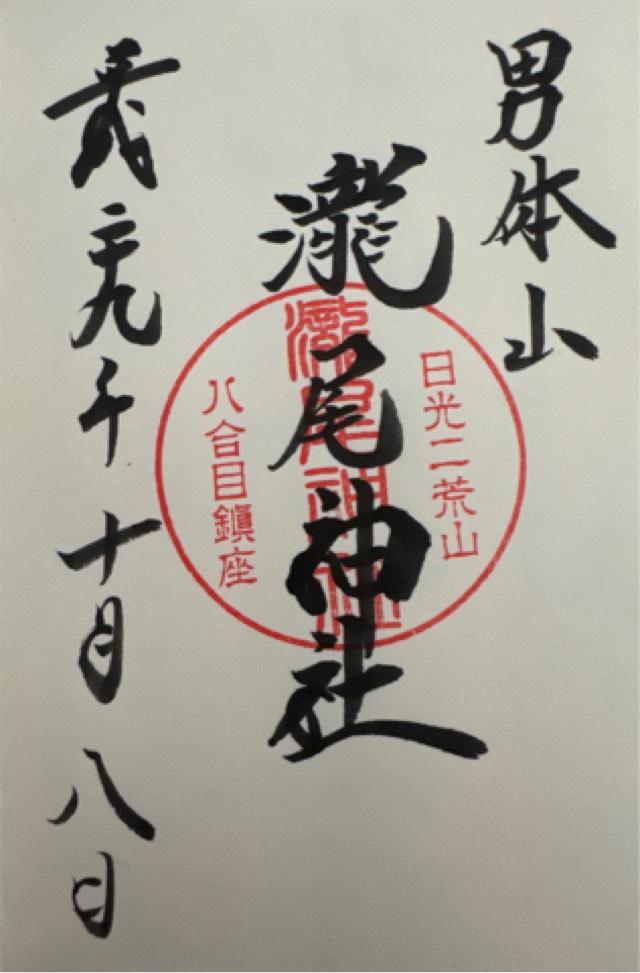 男体山
瀧尾神社
平成二十九年十月八日
日光二荒山
瀧尾神社
八合目鎭座